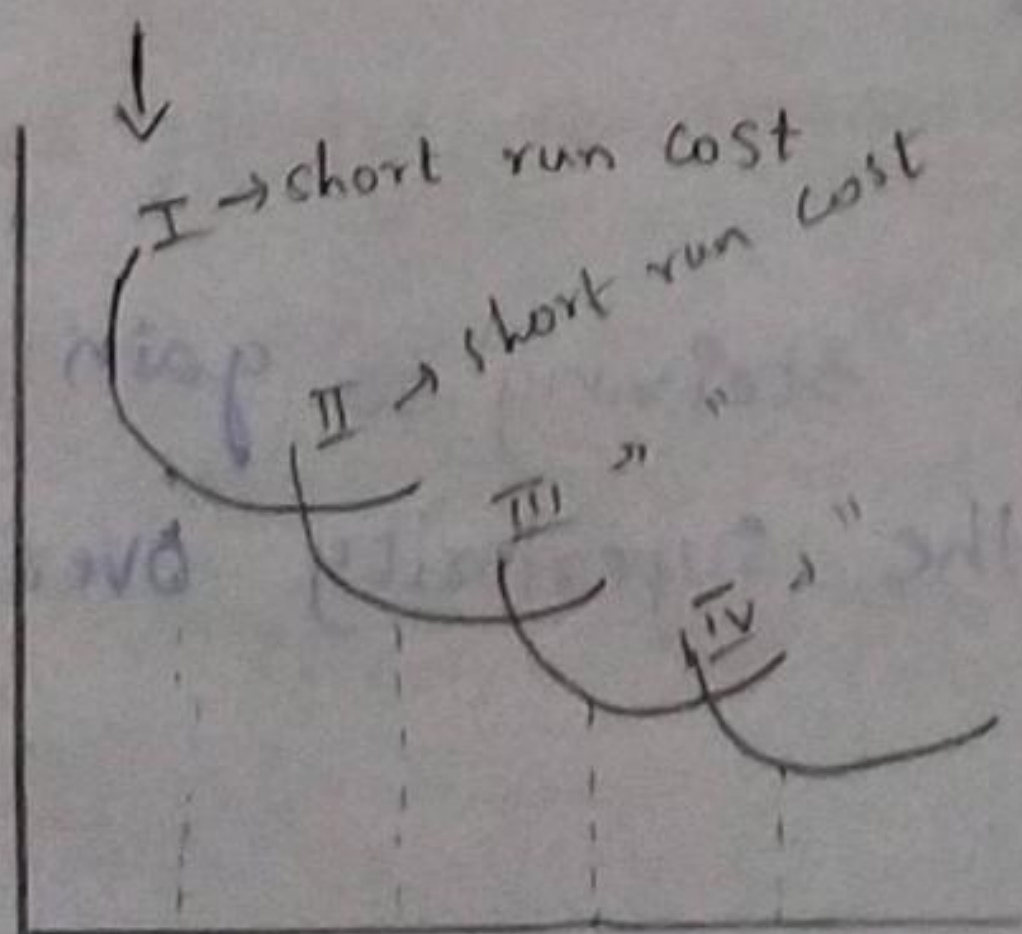 I → short run cost
II → short run cost
III " "
IV → "